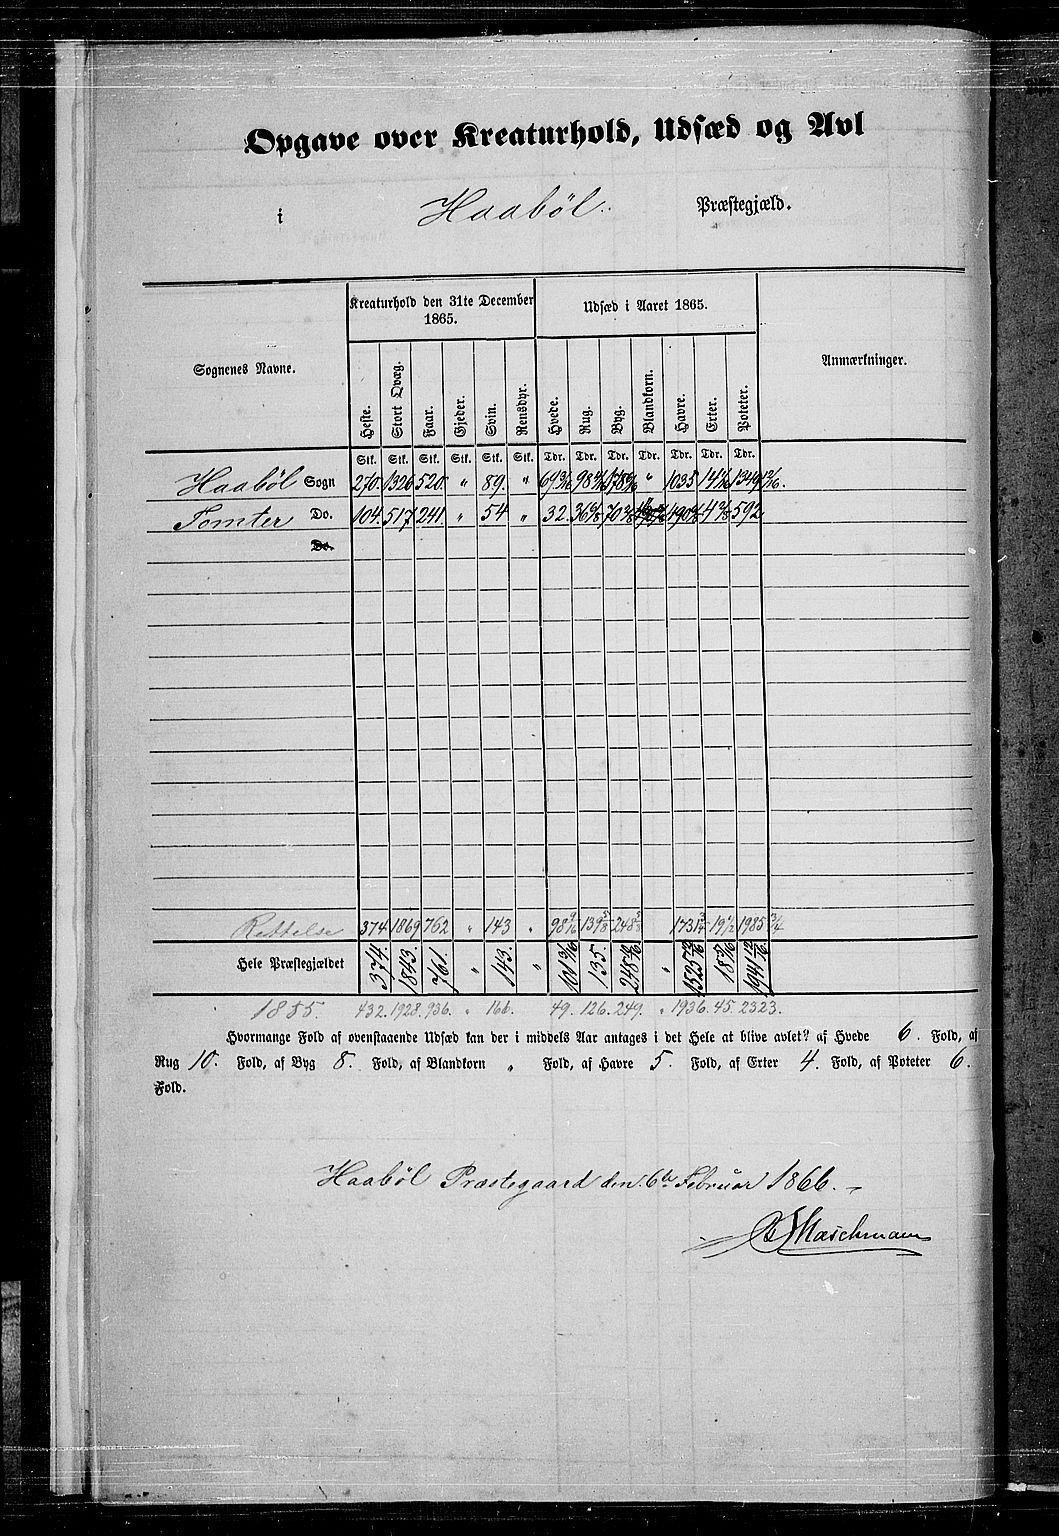 Opgave over Kreaturhold, Udsæd og Avl
i Haaböl Præstegjæld.
Sognenes Navne. Kreaturhold den 31te December 1865. Udsæd i Aaret 1865. Anmærkninger.
Heste. Stort Qvæg. Faar. Gjeder. Svin. Rensdyr. Hvede. Rug. Byg. Blandkorn. Havre. Erter. Poteter.
Stk. Stk. Stk. Stk. Stk. Stk. Tdr. Tdr. Tdr. Tdr. Tdr. Tdr. Tdr.
Haaböl Sogn 270. 1326 520. " 89. " " 1035
Tomter Do. 104. 517 241. " 54 " 32. 592
Do.
Rettelse 374 1869 762 " 143 " 98 9/16 139 5/8 248 5/8 1731 3/4 19 1/2 1985 3/4
Hele Præstegjældet 374. 1843. 761. " 143. " 135. "
1855. 432. 1928. 936. " 166. 49. 126. 249. " 1936. 45. 2323.
Hvormange Fold af ovenstaaende Udsæd kan der i middels Aar antages i det Hele at blive avlet? af Hvede 6. Fold, af
Rug 10. Fold, af Byg 8. Fold, af Blandkorn " Fold, af Havre 5. Fold, af Erter 4. Fold, af Poteter 6.
Fold.
Haaböl Præstegaard den 6te Februar 1866.
Maschmann